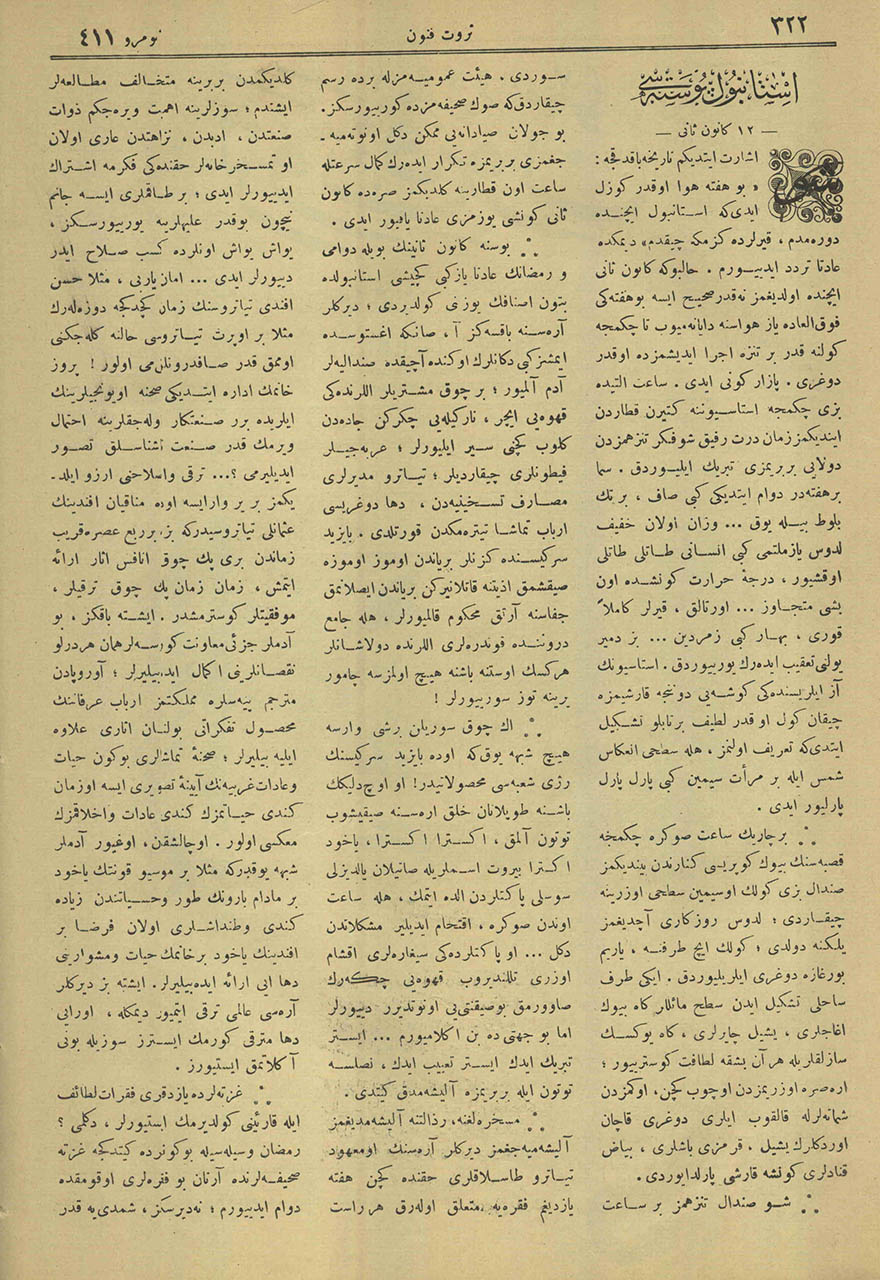 ٣٢٢
ثروت فنون
نومرو ٤١١
استانبول پوسته‌سی
— ١٢ كانون ثانی —
شو
اشارت ایتدیكم تاریخه باقدقجه :
« بو هفته هوا اوقدر كوزل
ایدی‌كه استانبول ایچنده
دوره‌مدم ، قیرلرده كزمكه چیقدم» دیمكده
عادتا تردد ایدییورم . حالبوكه كانون ثانی
ایچنده اولدیغمز نه‌قدر صحیح ایسه بوهفته‌كی
فوق‌العاده یاز هواسنه دایانه‌میوب تا چكمجه
كولنه قدر بر تنزه اجرا ایدیشمزده اوقدر
دوغری . پازار كونی ایدی . ساعت التیده
بزی چكمجه استاسیوننه كتیرن قطاردن
ایندیكمز زمان درت رفیق شوفكر تنزهمزدن
دولایی بربریمزی تبریك ایلیوردق . سما
برهفته‌در دوام ایتدیكی كبی صاف ، بر تك
بلوط بیله یوق ... وزان اولان خفیف
لدوس یازملتمی كبی انسانی طاتلی طاتلی
اوقشیور ، درجهٔ حرارت كونشده اون
بشی متجاوز ... اورتالق ، قیرلر كاملاً
قوری ، بهار كبی زمردین ... بز دمیر
یولنی تعقیب ایده‌رك یوریوردق . استاسیونك
آز ایلریسنده‌كی كوشه‌یی دوننجه قارشیمزه
چیقان كول او قدر لطیف برتابلو تشكیل
ایتدی‌كه تعریف اولنمز ، هله سطحی انعكاس
شمس ایله بر مرأت سیمین كبی پارل پارل
پارلیور ایدی .
⁂ برچاریك ساعت صوكره چكمجه
قصبه‌سنك بیوك كوپریسی كنارندن بیندیكمز
صندال بزی كولك اوسیمین سطحی اوزرینه
چیقاردی ؛ لدوس روزكاری آچدیغمز
یلكنه دولدی ؛ كولك ایچ طرفنه ، یاریم
بورغازه دوغری ایلریلیوردق . ایكی طرف
ساحلی تشكیل ایدن سطح مائللر كاه بیوك
اغاجلری ، یشیل چایرلری ، كاه یوكسك
سازلقلریله هر آن بشقه لطافت كوسترییور ؛
اره‌صره اوزریمزدن اوچوب كچن ، اوكمزدن
شماته‌لرله قالقوب ایلری دوغری قاچان
اوردكلرك یشیل ، قرمزی باشلری ، بیاض
قنادلری كونشه قارشی پارلدایوردی .
⁂ شو صندال تنزهمز بر ساعت
سوردی . هیئت عمومیه‌مزله برده رسم
چیقاردق‌كه صوك صحیفه‌مزده كورییورسكز .
بو جولان صیادانه‌یی ممكن دكل اونوته‌میه‌-
جغمزی بربریمزه تكرار ایده‌رك كمال سرعتله
ساعت اون قطارینه كلدیكمز صره‌ده كانون
ثانی كونشی یوزمزی عادتا یاقیور ایدی .
⁂ بوسنه كانون ثانینك بویله دوامی
و رمضانك عادتا یازكبی كچیشی استانبولده
بتون اصنافك یوزنی كولدیردی ؛ دیركلر
آره‌سنه باقسه‌كز آ ، صانكه اغستوسده
ایمشز كبی دكانلرك اوكنده آچیقده صندالیه‌لر
آدم آلمیور ؛ بر چوق مشتریلر اللرنده‌كی
قهوه‌یی ایچر ، ناركیله‌یی چكركن جاده‌دن
كلوب كچنی سیر ایلیورلر ؛ عربه‌جیلر
فیطونلری چیقاردیلر ؛ تیاترو مدیرلری
مصارف تسخینیه‌دن ، دها دوغریسی
ارباب تماشا تیتره‌مكدن قورتلدی . بایزید
سركیسنده كزنلر بریاندن اوموز اوموزه
صیقشمق اذیتنه قاتلانیركن بریاندن ایصلانمق
جفاسنه آرتق محكوم قالمیورلر ، هله جامع
دروننده فوندره‌لری اللرنده دولاشانلر
هركسك اوستنه باشنه هیچ اولمزسه چامور
یرینه توز سورییورلر !
⁂ اك چوق سوریان برشی وارسه
هیچ شبهه یوق‌كه اوده بایزید سركیسنك
رژی شعبه‌سی محصولاتیدر! او اوچ دلیكك
باشنه طوپلانان خلق اره‌سنه صیقیشوب
توتون آلمق ، اكسترا اكسترا ، یاخود
اكسترا بیروت اسملریله صاتیلان یالدیزلی
سوسلی پاكتلردن الده ایتمك ، هله ساعت
اوندن صوكره ، اقتحام ایدیلیر مشكلاتدن
دكل ... او پاكتلرده‌كی سیغاره‌لری اقشام
اوزری تللندیروب قهوه‌یی چكه‌رك
صاوورمق بوصیقنتی‌یی اونوتدیرر دییورلر
اما بو جهتی ده بن اكلامیورم ... ایستر
تبریك ایدك ایستر تعییب ایدك ، نصلسه
توتون ایله بربریمزه آلیشه‌مدق كیتدی .
⁂ مسخره‌لغنه، رذالتنه آلیشه‌مدیغمز
آلیشه‌میه‌جغمز دیركلر آره‌سنك اومعهود
تیاترو طاسلاقلری حقنده كچن هفته
یازدیغم فقره‌یه متعلق اوله‌رق هر راست
كلدیكمدن بربرینه متخالف مطالعه‌لر
ایشتدم ؛ سوزلرینه اهمت ویره‌جكم ذوات
صنعتدن ، ادبدن ، نزاهتدن عاری اولان
او تمسخرخانه‌لر حقنده‌كی فكرمه اشتراك
ایدییورلر ایدی ؛ بر طاقملری ایسه جانم
نیچون بوقدر علیهلرینه یورییورسكز ،
یواش یواش اونلرده كسب صلاح ایدر
دییورلر ایدی ... امان یاربی ، مثلا حسن
افندی تیاتروسنك زمان كچدكجه دوزه‌له‌رك
مثلا بر اوپرت تیاتروسی حالنه كله‌جكنی
اوممق قدر صافدرونلق‌می اولور ! پروز
خانمك اداره ایتدیكی صحنه اویونجیلرینك
ایلریده برر صنعتكار وله‌جقلرینه احتمال
ویرمك قدر صنعت ناشناسلق تصور
ایدیلیرمی ؟... ترقی واصلاحنی ارزو ایلد-
یكمز بر یر وارایسه اوده مناقیان افندینك
عثمانلی تیاتروسیدركه بز برربع عصره قریب
زماندن بری پك چوق انافس اثار ارائه
ایتمش ، زمان زمان پك چوق ترقیلر ،
موفقیتلر كوسترمشدر . ایشته باقكز ، بو
آدملر جزئی معاونت كورسه‌لرهمان هردرلو
نقصانلرینی اكمال ایدبیلیرلر ؛ آوروپادن
مترجم پیه‌سلره مملكتمز ارباب عرفاننك
محصول تفكراتی بولنان اثاری علاوه
ایلیه بیلیرلر ؛ صحنهٔ تماشالری بوكون حیات
وعادات غربیه‌نك آیینهٔ تصویری ایسه اوزمان
كندی حیاتمزك كندی عادات واخلاقمزك
معكسی اولور . اوچالشقن، اوغیور آدملر
شبهه یوقدركه مثلا بر موسیو قونتك یاخود
بر مادام بارونك طور وحسیاتندن زیاده
كندی وطنداشلری اولان فرضا بر
افندینك یاخود برخانمك حیات ومشوارینی
دها ایی ارائه ایده‌بیلیرلر. ایشته بز دیركلر
آره‌سی عالمی ترقی ایتمیور دیمكله ، اورایی
دها مترقی كورمك ایسترز سوزیله بونی
آكلاتمق ایستیورز .
⁂ غزته‌لرده یازدقری فقرات لطائف
ایله قارئینی كولدیرمك ایستیورلر ، دكلمی ؟
رمضان وسیله‌سیله بوكونرده كیتدكجه غزته
صحیفه‌لرنده آرتان بو فقره‌لری اوقومقده
دوام ایدییورم ؛ نه‌دیرسكز ، شمدی‌یه قدر